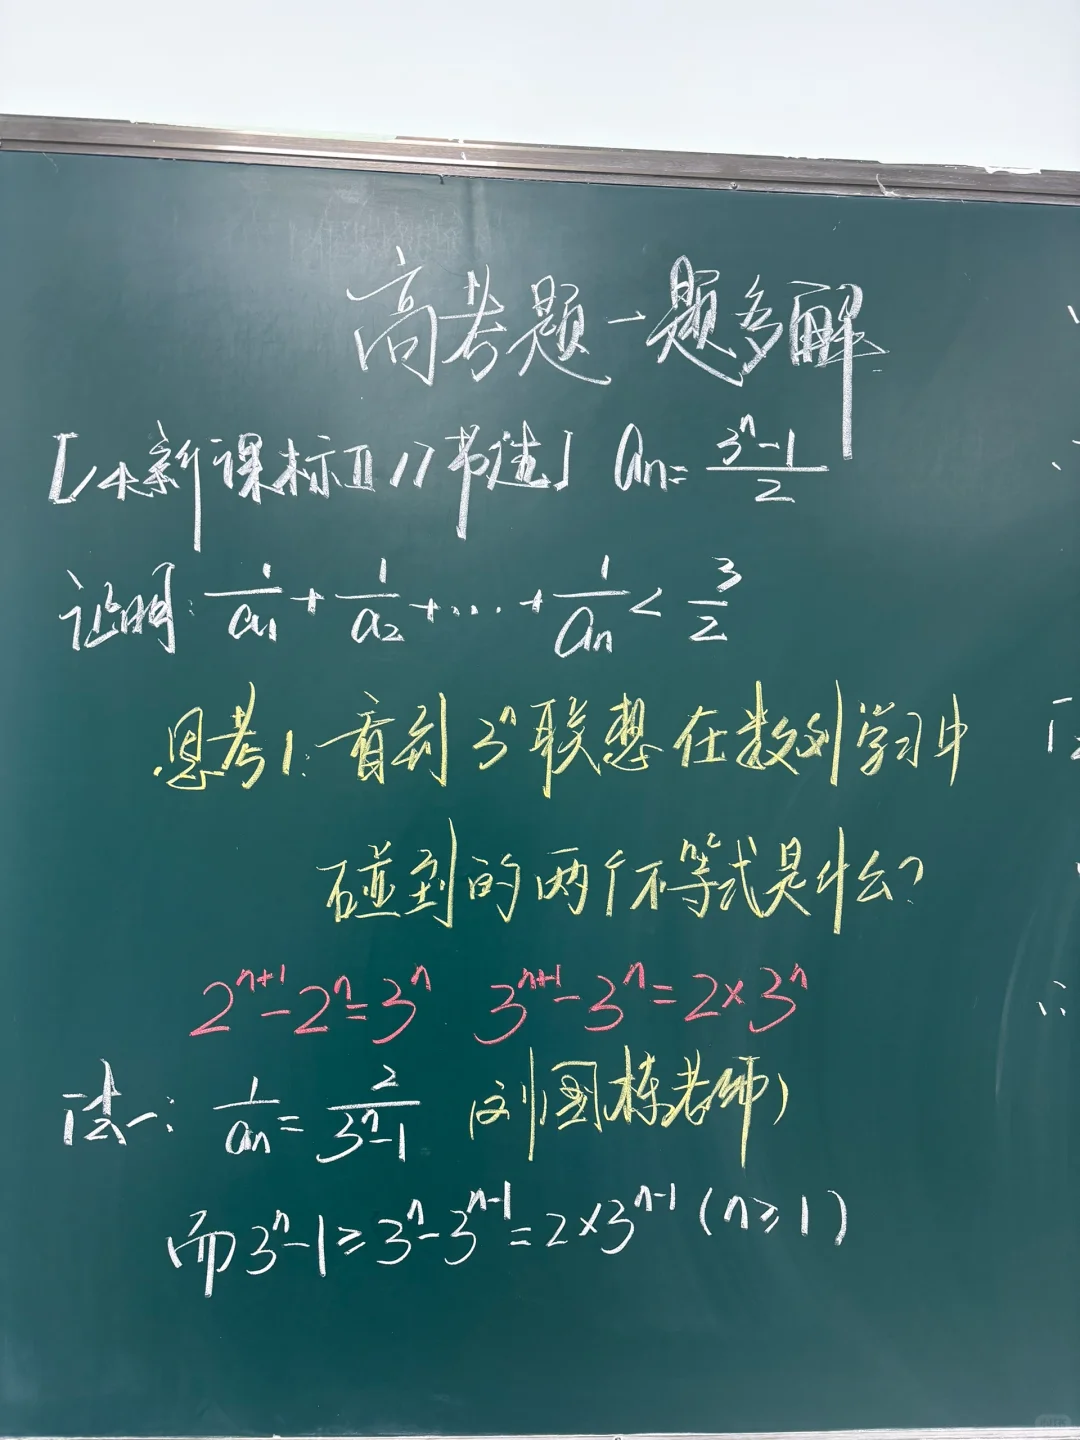 高考题一题多解
[14新课标Ⅱ17节选] aₙ = (3ⁿ-1)/2
证明: 1/a₁ + 1/a₂ + … + 1/aₙ < 3/2
思考1: 看到3ⁿ联想在数列学习中
碰到的两个不等式是什么?
2ⁿ⁺¹-2ⁿ=3ⁿ 3ⁿ⁺¹-3ⁿ=2×3ⁿ
法一: 1/aₙ = 2/(3ⁿ-1) (刘国栋老师)
而3ⁿ-1≥3ⁿ-3ⁿ⁻¹=2×3ⁿ⁻¹ (n≥1)